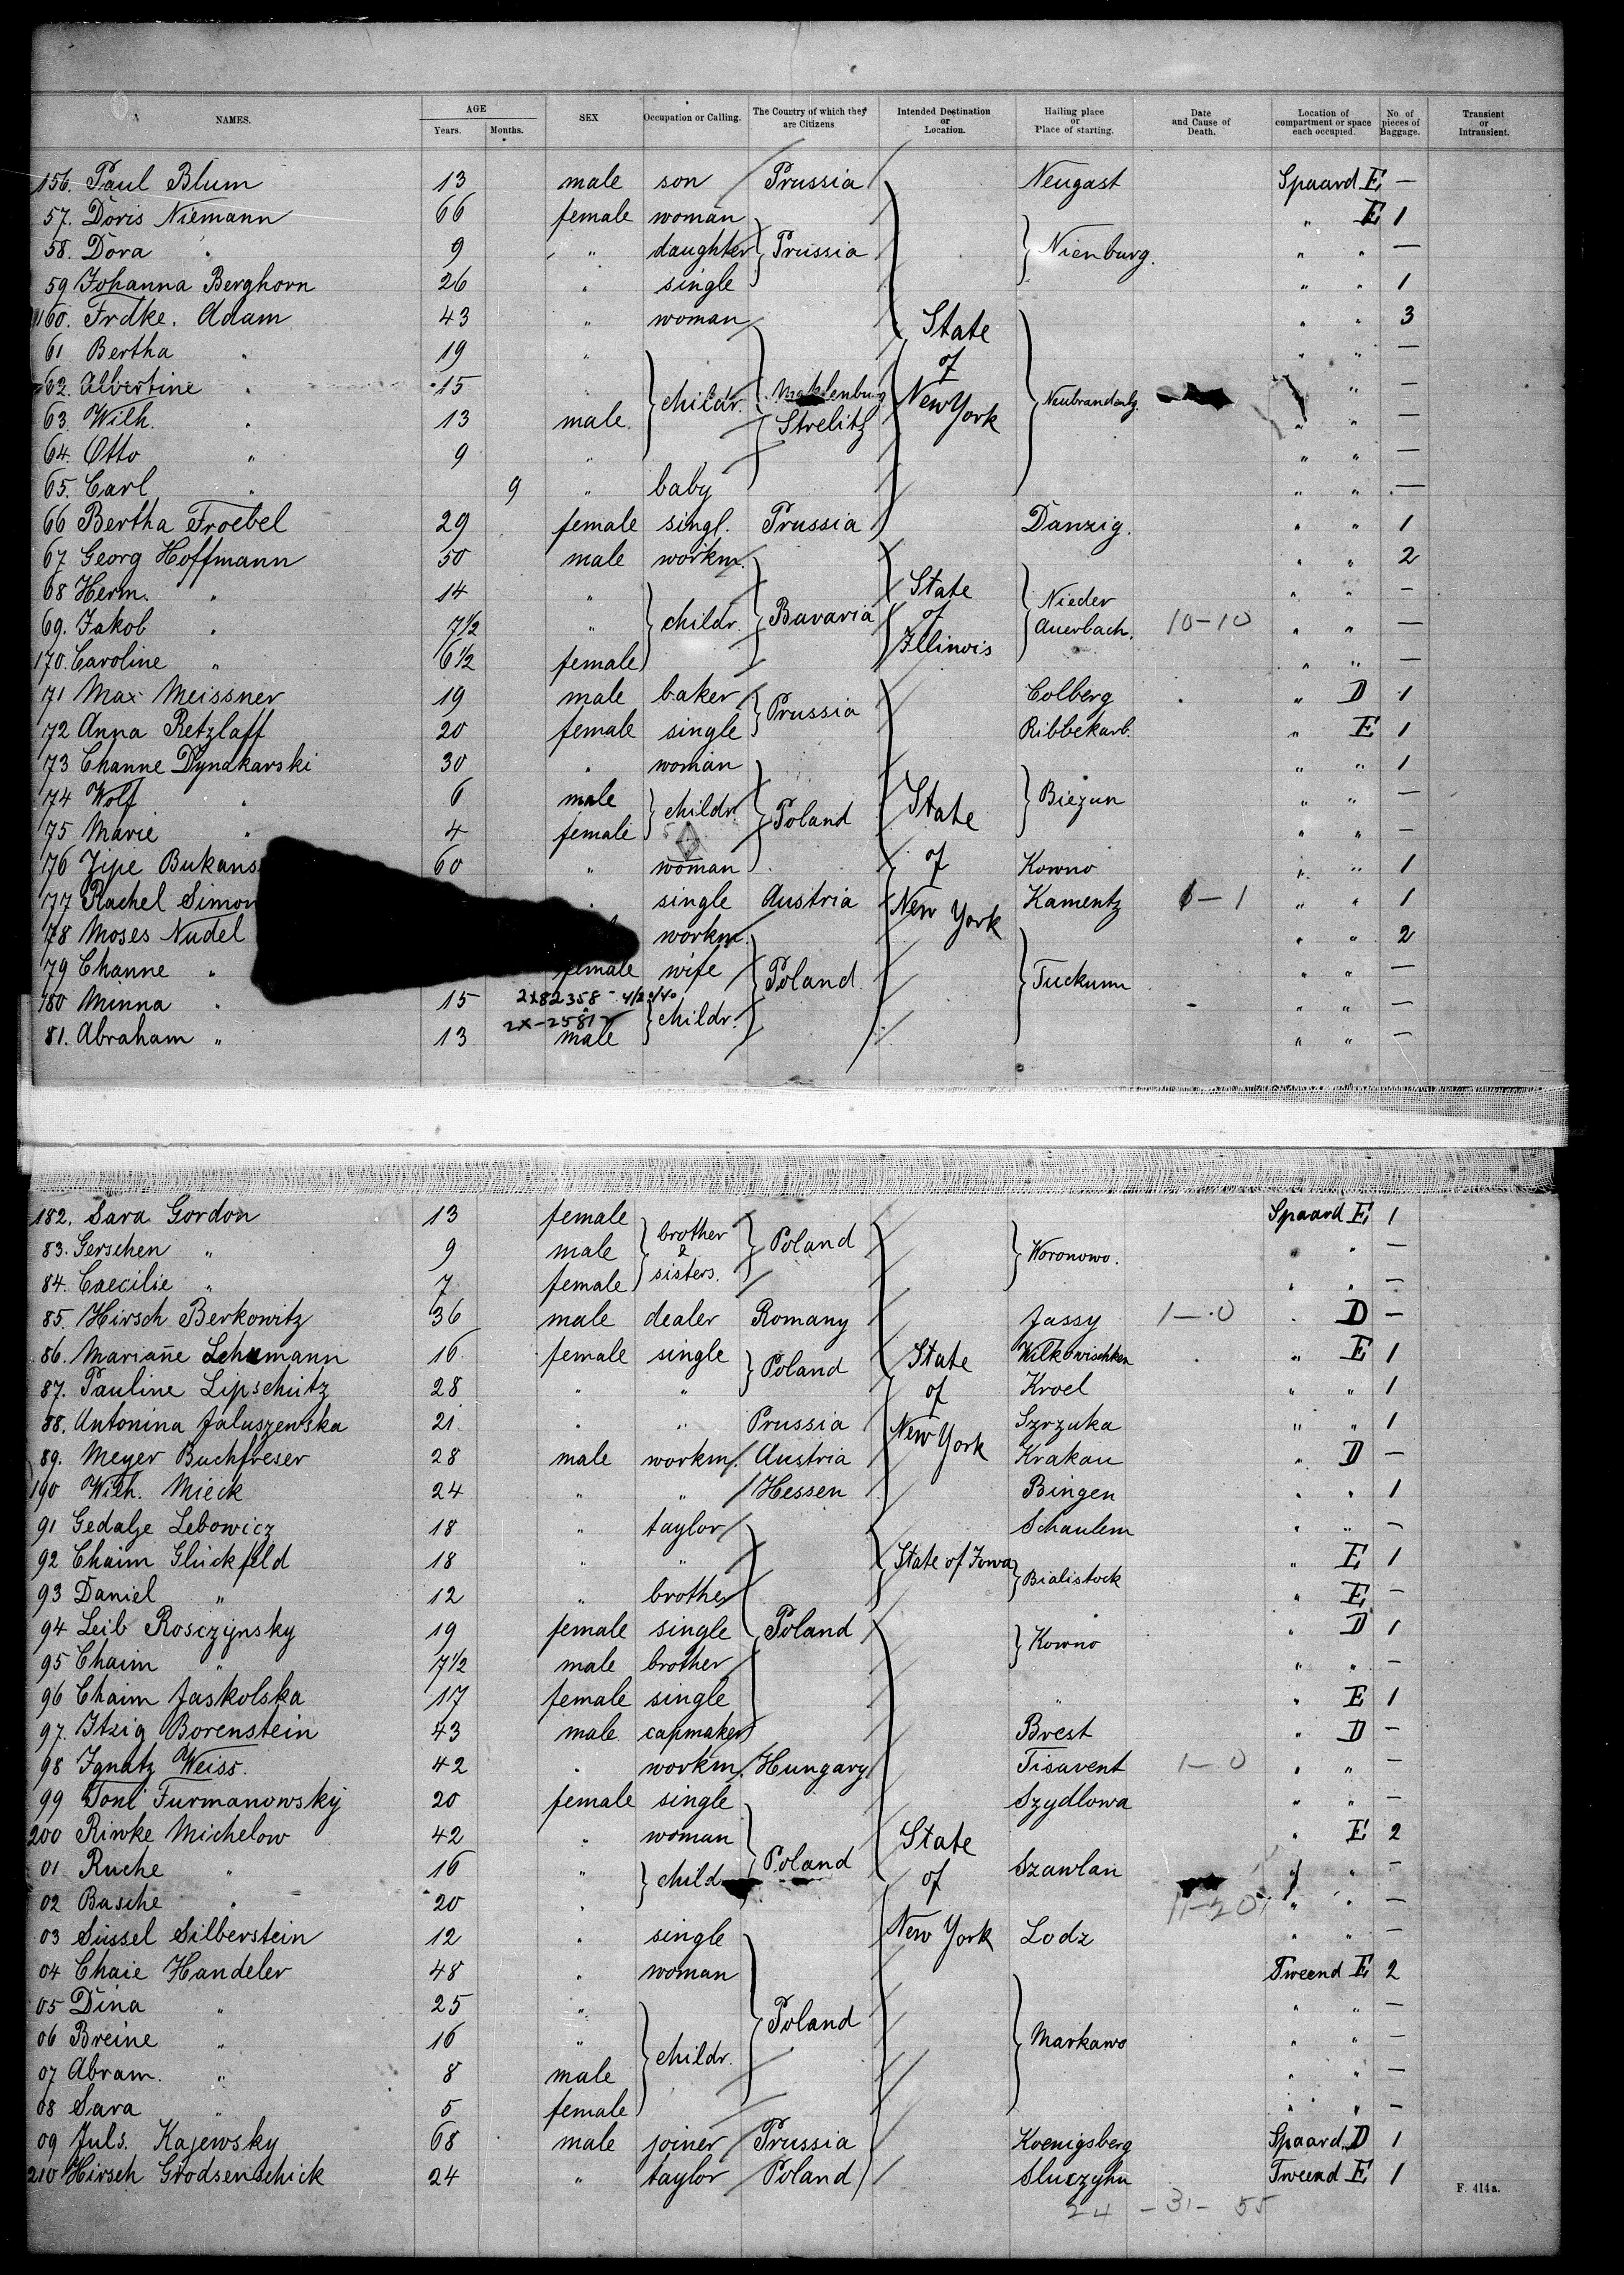 NAMES. AGE Years. Months. SEX Occupation or Calling. The Country of which they are Citizens Intended Destination or Location. Hailing place or Place of starting. Date and Cause of Death. Location of compartment or space each occupied. No. of pieces of Baggage. Transient or Intransient.
156. Paul Blum 13 male son Prussia Neugast Spaard E —
57. Doris Niemann 66 female woman " E 1
58. Dora " 9 " daughter } Prussia } Nienburg. " " —
59 Johanna Berghorn 26 " single " " 1
160. Frdke. Adam 43 " woman State " " 3
61 Bertha " 19 " of " " —
62 Albertine " 15 " childr. Mecklenburg New York Neubrandenbg. " —
63. Wilh. " 13 male. Strelitz " " —
64. Otto " 9 " " " —
65. Carl " 9 " baby " " —
66 Bertha Froebel 29 female singl. Prussia Danzig. " " 1
67 Georg Hoffmann 50 male workm. " " 2
68 Herm. " 14 " State Nieder " " —
69. Jakob " 7 1/2 " childr. Bavaria of Auerbach. 10-10 " " —
170. Caroline " 6 1/2 female Illinois " " —
71 Max Meissner 19 male baker Prussia Colberg " D 1
72 Anna Retzlaff 20 female single Ribbekarb. " E 1
73 Channe Dynakarski 30 " woman " " 1
74 Wolf " 6 male childr. Poland State Biezun " " —
75 Marie " 4 female " " —
76 Zipe Bukans 60 " woman of Kowno " " 1
77 Rachel Simon " single Austria New York Kamentz 1-1 " " 1
78 Moses Nudel workm. " " 2
79 Channe " female wife Poland. Tuckum " " —
180 Minna " 15 2X82358 - 4/20/40 childr. " " —
81. Abraham " 13 male " " —
182. Sara Gordon 13 female brother Spaard E 1
83. Gerschen " 9 male & Poland Woronowo. " " —
84. Caecilie " 7 female sisters. " " —
85. Hirsch Berkowitz 36 male dealer Romany Jassy 1-0 " D —
86. Marianne Lehumann 16 female single Poland State Wilkowischken " E 1
87. Pauline Lipschütz 28 " " of Kroel " " 1
88. Antonina Jaluszewska 21 " " Prussia New York Szrzuka " " 1
89. Meyer Buchfreser 28 male workm. Austria Krakau " D —
190 Wilh. Mieck 24 " " Hessen Bingen " " 1
91 Gedalje Lebowicz 18 " taylor Schaulem " " —
92 Chaim Glückfeld 18 " " State of Iowa Bialistock " E 1
93 Daniel " 12 " brother " E —
94 Leib Rosczynsky 19 female single Poland Kowno " D 1
95 Chaim " 17 1/2 male brother " " —
96 Chaim Jaskolska 17 female single " " E 1
97. Itzig Borenstein 43 male capmaker Brest " D —
98 Ignatz Weiss. 42 " workm. Hungary Tisavent 1-0 " " —
99 Toni Furmanowsky 20 female single Szydlowa " " —
200 Riwke Michelow 42 " woman State " E 2
01 Ruche " 16 " child Poland of Szawlan " " —
02 Basche " 20 " 11-20 " " —
03 Süssel Silberstein 12 " single New York Lodz " " —
04 Chaie Handeler 48 " woman Tweend E 2
05 Dina " 25 " Poland " " —
06 Breine " 16 " childr. Markawo " " —
07 Abram. " 8 male " " —
08 Sara " 5 female " " —
09 Juls. Kajewsky 68 male joiner Prussia Koenigsberg Spaard D 1
210 Hirsch Grodsenschick 24 " taylor Poland Sluczyhn Tweend E 1
24 - 31 - 55
F. 414a.